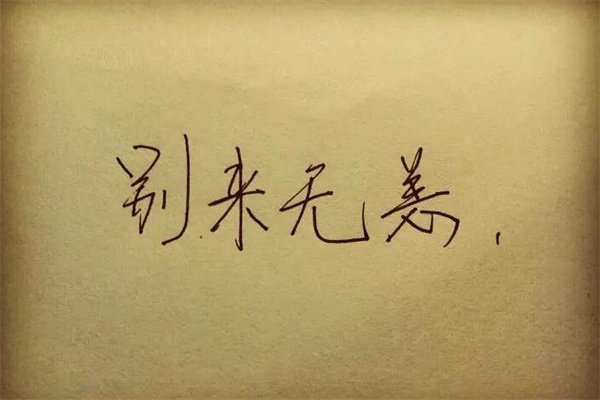 别来无恙,